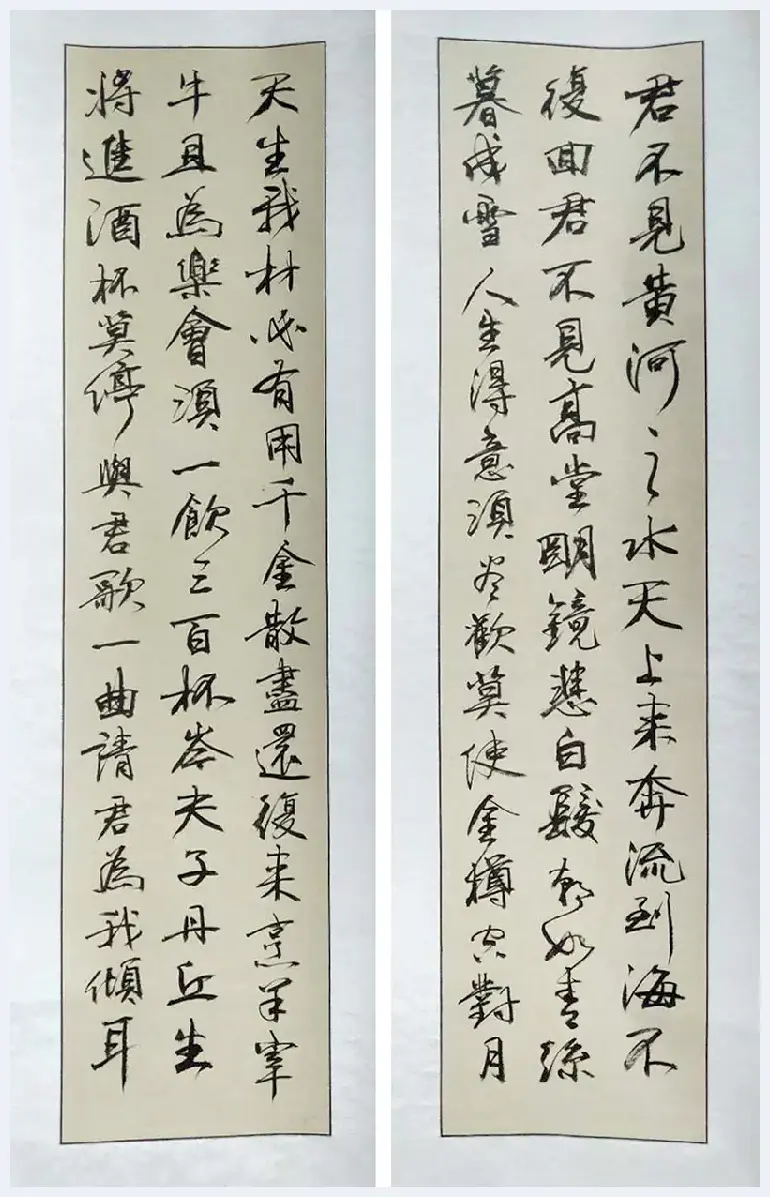 君不見黃河之水天上来奔流到海不
復回君不見高堂明鏡悲白髮朝如青絲
暮成雪人生得意須尽歡莫使金樽空對月
天生我材必有用千金散盡還復来烹羊宰
牛且為樂會須一飲三百杯岑夫子丹丘生
將進酒杯莫停與君歌一曲請君為我傾耳